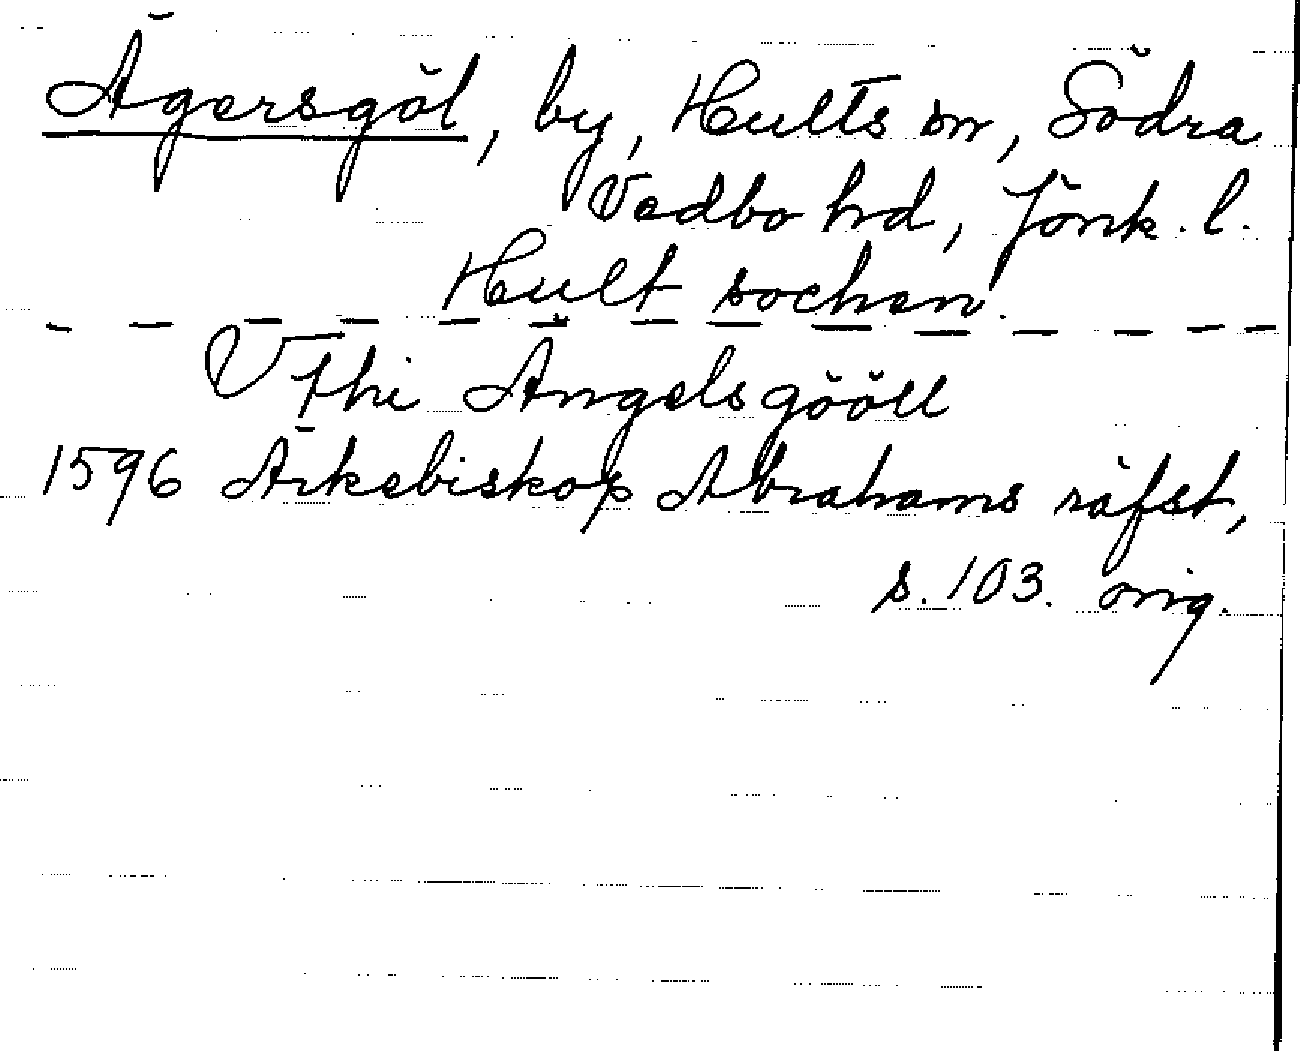 Ägersgöl, by, Hults sn, Södra
Vedbo hd, Jönk. l.
Hult sochen.
Vthi Ängelsgööll
1596 Ärkebiskop Abrahams räfst,
s. 103. orig.